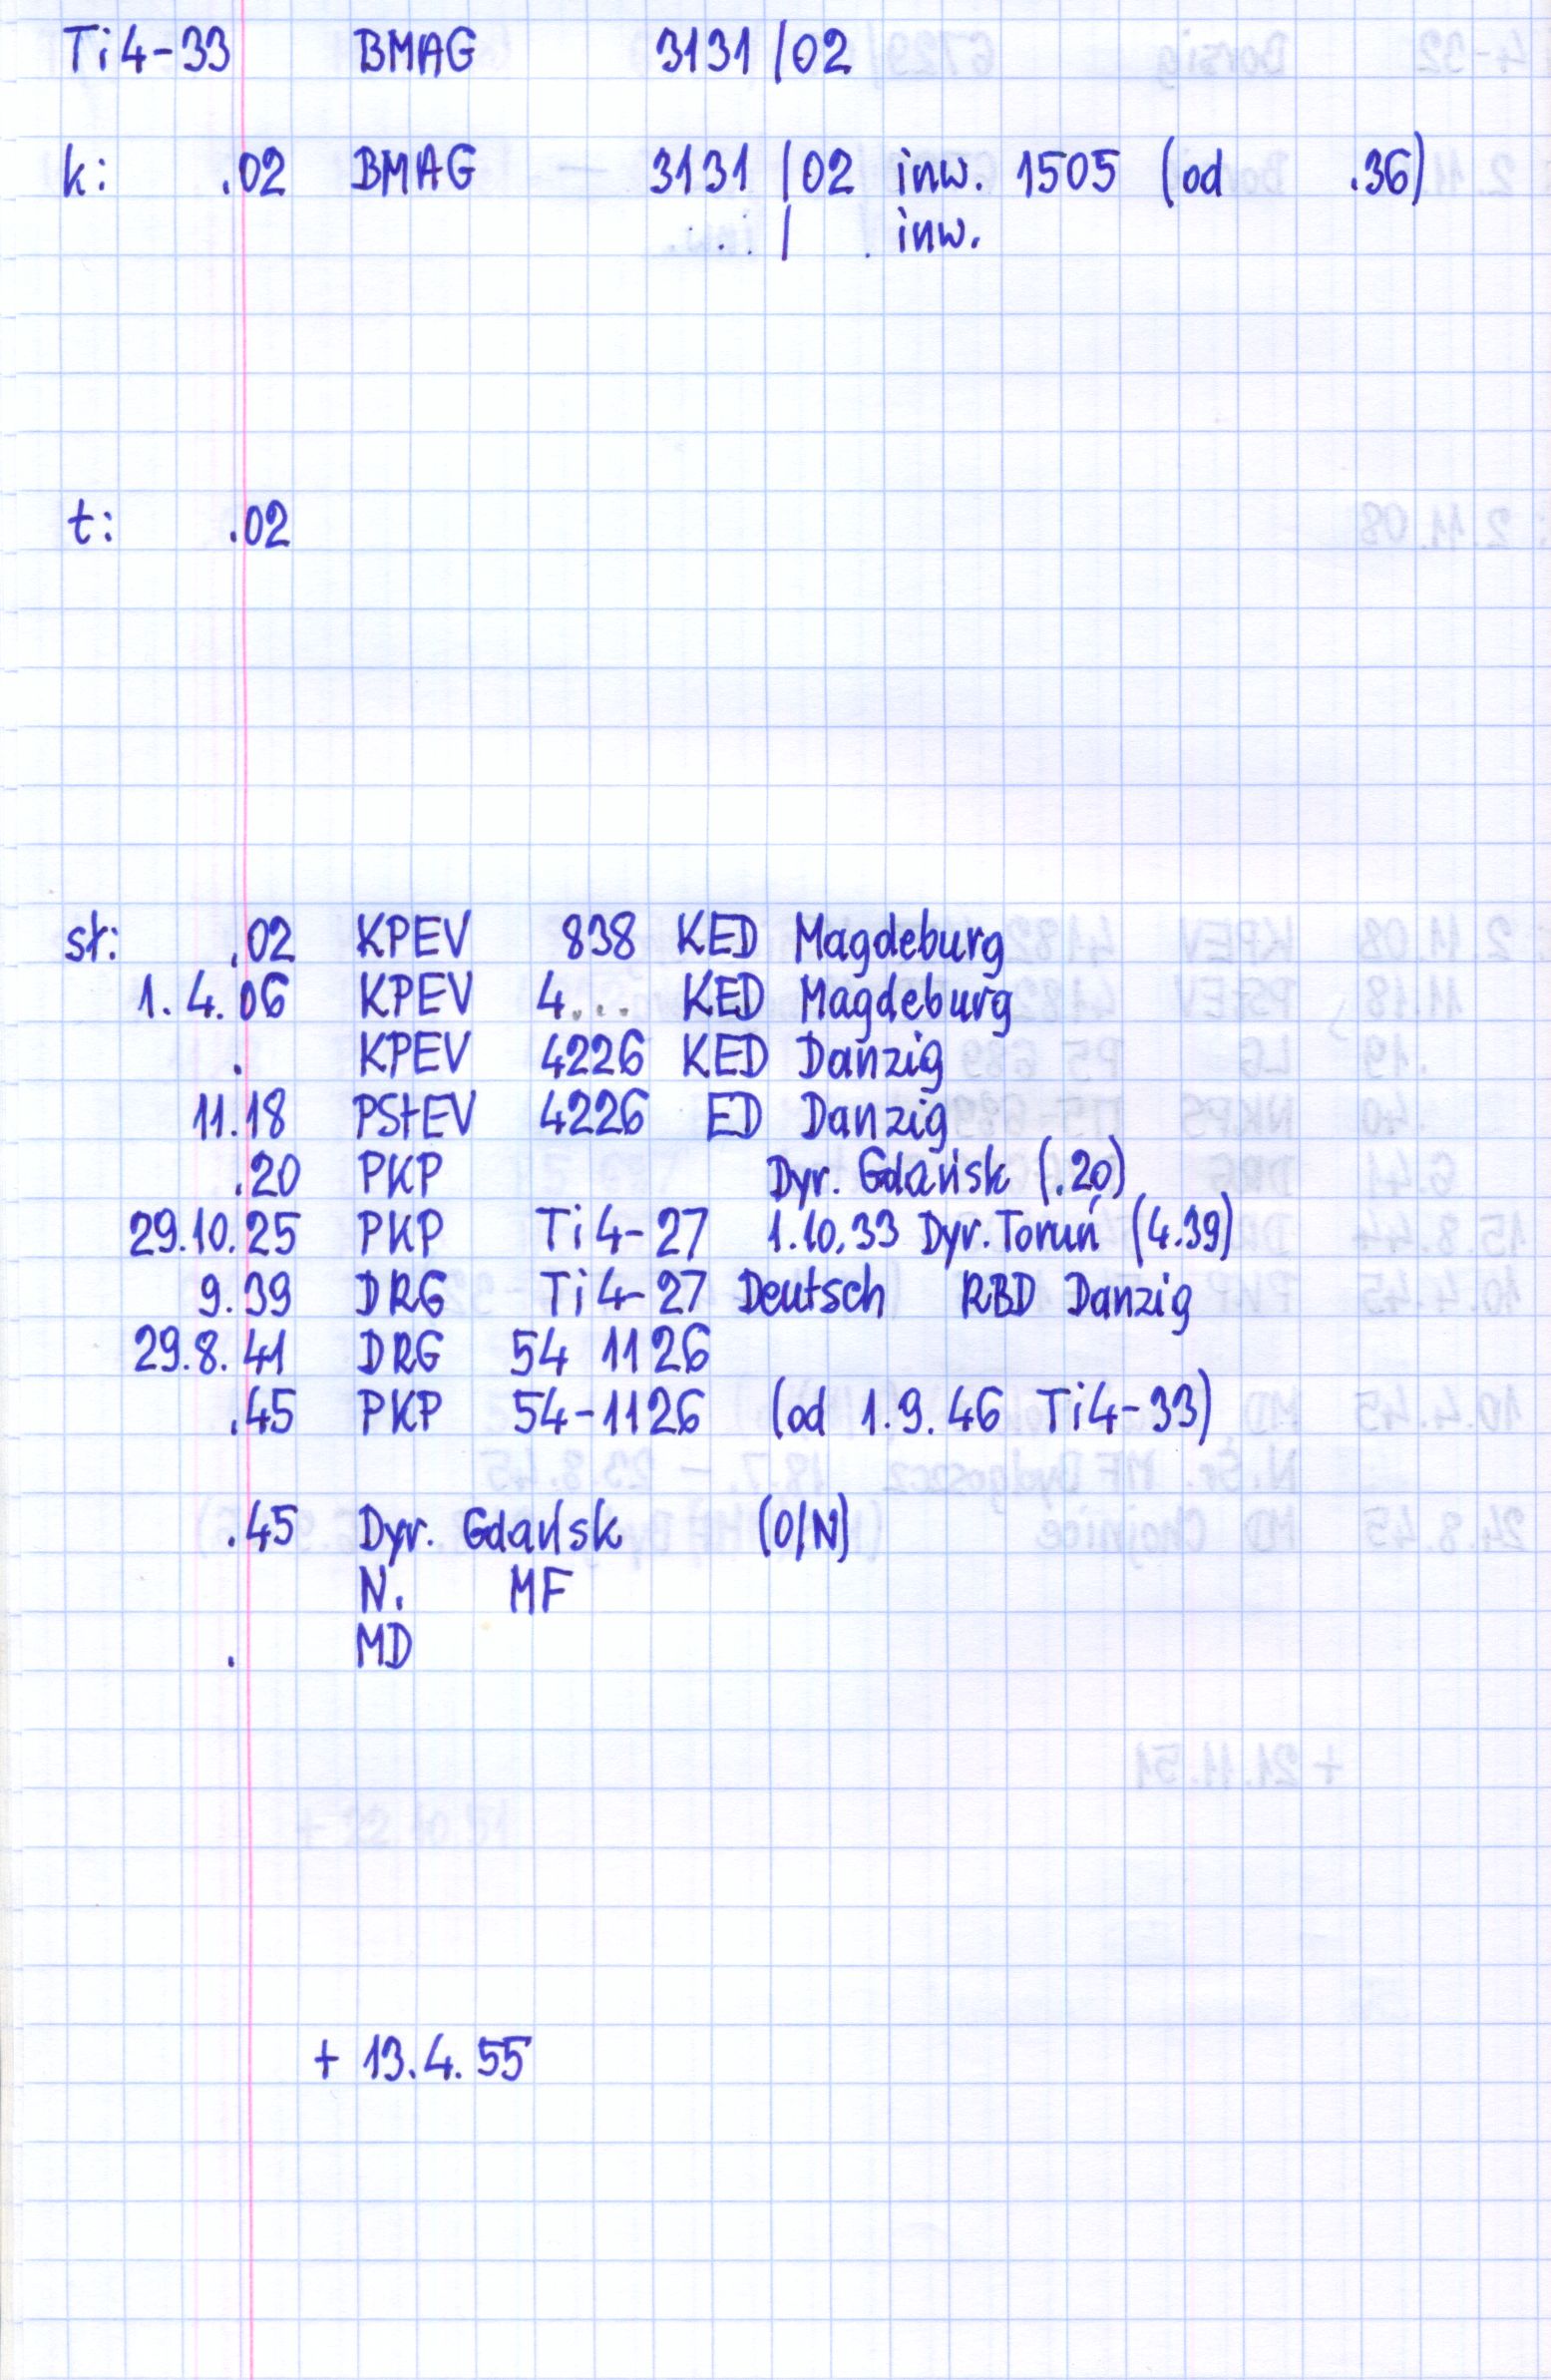 Ti4-33 BMAG 3131/02
k: .02 BMAG 3131/02 inw. 1505 (od .36)
. . . / . inw.
t: .02
st: .02 KPEV 838 KED Magdeburg
1.4.06 KPEV 4... KED Magdeburg
. KPEV 4226 KED Danzig
11.18 PStEV 4226 ED Danzig
.20 PKP Dyr. Gdańsk (.20)
29.10.25 PKP Ti4-27 1.10.33 Dyr. Toruń (4.39)
9.39 DRG Ti4-27 Deutsch RBD Danzig
29.8.41 DRG 54 1126
.45 PKP 54-1126 (od 1.9.46 Ti4-33)
.45 Dyr. Gdańsk (O/N)
N. MF
. MD
+ 13.4.55